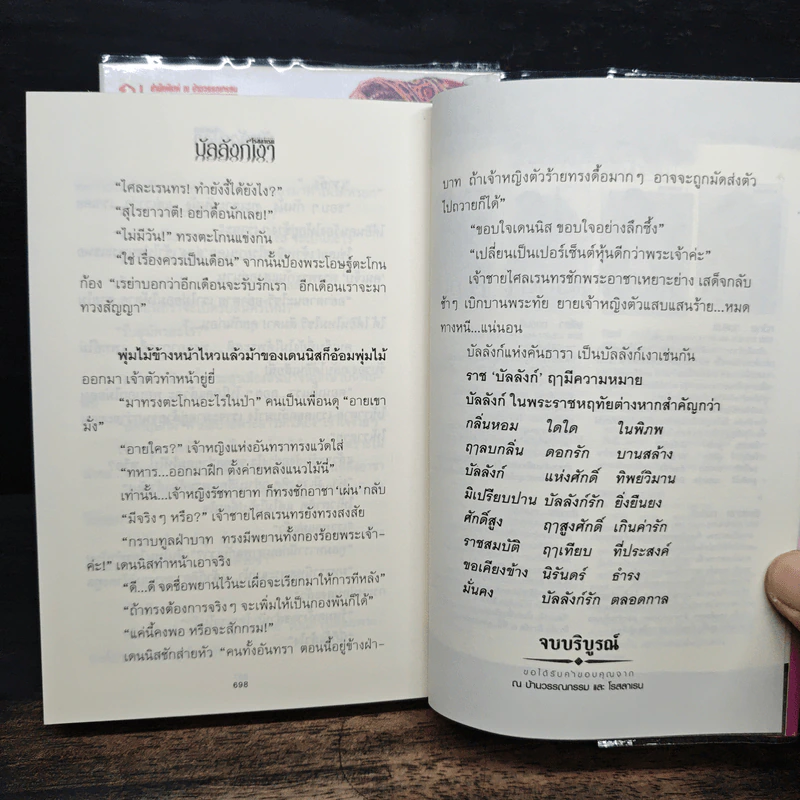 บัลลังก์เงา
"ไศละเรนทร! ทำยังงี้ได้ยังไง?"
"สุไรยาวาตี! อย่าดื้อนักเลย!"
"ไม่มีวัน!" ทรงตะโกนแข่งกัน
"ใช่ เรื่องควรเป็นเดือน" จากนั้นป้องพระโอษฐ์ตะโกน
ก้อง "เรย่าบอกว่าอีกเดือนจะรับรักเรา อีกเดือนเราจะมา
ทวงสัญญา"
พุ่มไม้ข้างหน้าไหวแล้วม้าของเดนนิสก็อ้อมพุ่มไม้
ออกมา เจ้าตัวทำหน้ายู่ยี่
"มาทรงตะโกนอะไรในป่า" คนเป็นเพื่อนดุ "อายเขา
มั่ง"
"อายใคร?" เจ้าหญิงแห่งอันทราทรงแว้ดใส่
"ทหาร...ออกมาฝึก ตั้งค่ายหลังแนวไม้นี่"
เท่านั้น...เจ้าหญิงรัชทายาท ก็ทรงชักอาชา 'เผ่น' กลับ
"มีจริงๆ หรือ?" เจ้าชายไศลเรนทรยังทรงสงสัย
"กราบทูลฝ่าบาท ทรงมีพยานทั้งกองร้อยพระเจ้า-
ค่ะ!" เดนนิสทำหน้าเอาจริง
"ดี...ดี จดชื่อพยานไว้นะเผื่อจะเรียกมาให้การทีหลัง"
"ถ้าทรงต้องการจริงๆ จะเพิ่มให้เป็นกองพันก็ได้"
"แค่นี้คงพอ หรือจะสักกรม!"
เดนนิสชักส่ายหัว "คนทั้งอันทรา ตอนนี้อยู่ข้างฝ่า-
698
บาท ถ้าเจ้าหญิงตัวร้ายทรงดื้อมากๆ อาจจะถูกมัดส่งตัว
ไปถวายก็ได้"
"ขอบใจเดนนิส ขอบใจอย่างลึกซึ้ง"
"เปลี่ยนเป็นเปอร์เซ็นต์หุ้นดีกว่าพระเจ้าค่ะ"
เจ้าชายไศลเรนทรชักพระอาชาเหยาะย่าง เสด็จกลับ
ช้าๆ เบิกบานพระทัย ยายเจ้าหญิงตัวแสบแสนร้าย...หมด
ทางหนี...แน่นอน
บัลลังก์แห่งคันธารา เป็นบัลลังก์เงาเช่นกัน
ราช 'บัลลังก์' ฤๅมีความหมาย
บัลลังก์ ในพระราชหฤทัยต่างหากสำคัญกว่า
กลิ่นหอม ใดใด ในพิภพ
ฤๅลบกลิ่น ดอกรัก บานสล้าง
บัลลังก์ แห่งศักดิ์ ทิพย์วิมาน
มิเปรียบปาน บัลลังก์รัก ยิ่งยืนยง
ศักดิ์สูง ฤๅสูงศักดิ์ เกินค่ารัก
ราชสมบัติ ฤๅเทียบ ที่ประสงค์
ขอเคียงข้าง นิรันดร์ ธำรง
มั่นคง บัลลังก์รัก ตลอดกาล
จบบริบูรณ์
ขอได้รับคำขอบคุณจาก
ณ บ้านวรรณกรรม และ โรสลาเรน